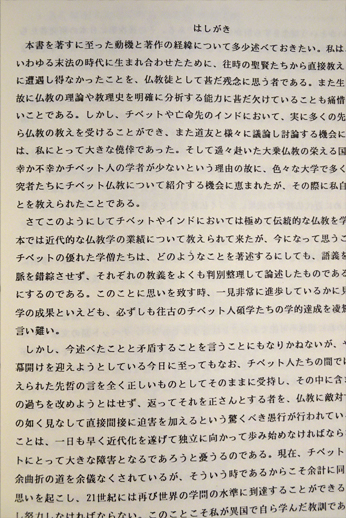 はしがき
本書を著すに至った動機と著作の経緯について多少述べておきたい。私は
いわゆる末法の時代に生まれ合わせたために、往時の聖賢たちから直接教え
に遭遇し得なかったことを、仏教徒として甚だ残念に思う者である。また生
故に仏教の理論や教理史を明確に分析する能力に甚だ欠けていることも痛惜
いことである。しかし、チベットや亡命先のインドにおいて、実に多くの先
ら仏教の教えを受けることができ、また道友と様々に議論し討論する機会に
は、私にとって大きな僥倖であった。そして遥々赴いた大乗仏教の栄える国
幸か不幸かチベット人の学者が少ないという理由の故に、色々な大学で多く
究者たちにチベット仏教について紹介する機会に恵まれたが、その際に私自
とを教えられたことである。
さてこのようにしてチベットやインドにおいては極めて伝統的な仏教を学
本では近代的な仏教学の業績について教えられて来たが、今になって思うこ
チベットの優れた学僧たちは、どのようなことを著述するにしても、語義を
脈を錯綜させず、それぞれの教義をよくも判別整理して論述したものである
にするのである。このことに思いを致す時、一見非常に進歩しているかに見
学の成果といえども、必ずしも往古のチベット人碩学たちの学的達成を凌駕
言い難い。
しかし、今述べたことと矛盾することを言うことにもなりかねないが、
幕開けを迎えようとしている今日に至ってもなお、チベット人たちの間では
えられた先哲の言を全く正しいものとしてそのままに受持し、その中に含ま
の過ちを改めようとはせず、返ってそれを正さんとする者を、仏教に敵対す
の如く見なして直接間接に迫害を加えるという驚くべき愚行が行われている
ことは、一日も早く近代化を遂げて独立に向かって歩み始めなければならな
トにとって大きな障害となるであろうと憂うるのである。現在、チベット
余曲折の道を余儀なくされているが、そういう時であるからこそ余計に同
思いを起こし、21世紀には再び世界の学問の水準に到達することができる
し努力しなければならない。このことこそ私が異国で自ら学んだ教訓であ